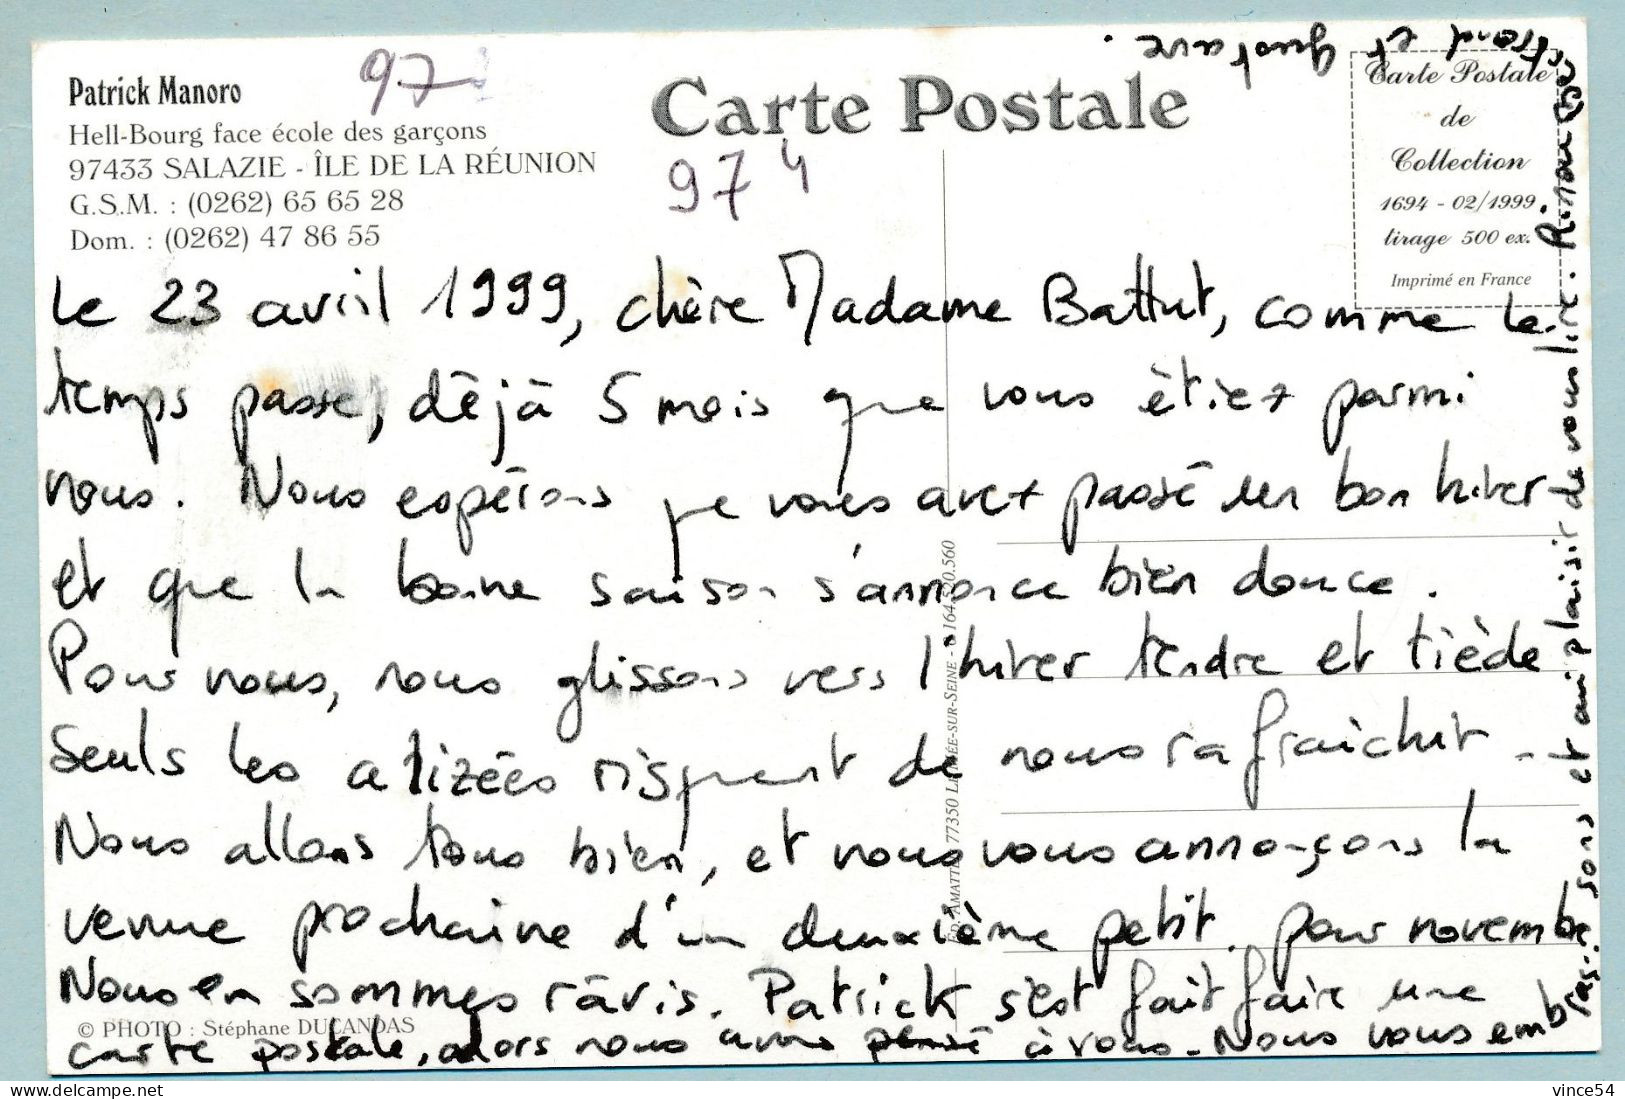 Patrick Manoro
Hell-Bourg face école des garçons
97433 SALAZIE - ÎLE DE LA RÉUNION
G.S.M. : (0262) 65 65 28
Dom. : (0262) 47 86 55
97
Carte Postale
974
Carte Postale
de
Collection
1694 - 02/1999
tirage 500 ex.
Imprimé en France
Le 23 avril 1999, chère Madame Battut, comme le
temps passe, déjà 5 mois que vous étiez parmi
nous. Nous espérons que vous avez passé un bon hiver
et que la bonne saison s'annonce bien douce.
Pour nous, nous glissons vers l'hiver tendre et tiède
Seuls les alizées risquent de nous rafraichir.
Nous allons tous bien, et nous vous annonçons la
venue prochaine d'un deuxième petit. pour novembre.
Nous en sommes ravis. Patrick s'est fait faire une
carte postale, alors nous avons pensé à vous. Nous vous emb
ras-
sons et au plaisir de vous lire.
et Gustave.
© PHOTO : Stéphane DUCANDAS
77350 LE MÉE-SUR-SEINE